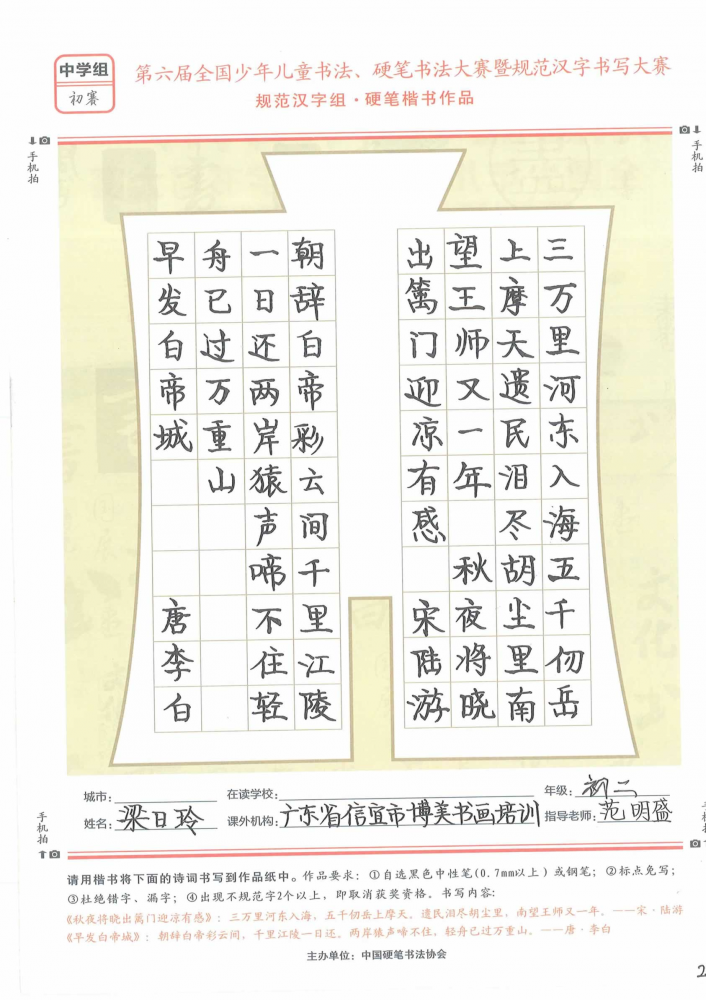 中学组
初赛
第六届全国少年儿童书法、硬笔书法大赛暨规范汉字书写大赛
规范汉字组·硬笔楷书作品
手机拍
手机拍
三万里河东入海五千仞岳
上摩天遗民泪尽胡尘里南
望王师又一年 秋夜将晓
出篱门迎凉有感 宋陆游
朝辞白帝彩云间千里江陵
一日还两岸猿声啼不住轻
舟已过万重山
早发白帝城 唐李白
手机拍
城市： 在读学校： 年级：初二
姓名：梁日玲 课外机构：广东省信宜市博美书画培训 指导老师：范明盛
请用楷书将下面的诗词书写到作品纸中。作品要求：①自选黑色中性笔(0.7mm以上)或钢笔；②标点免写；
③杜绝错字、漏字；④出现不规范字2个以上，即取消获奖资格。书写内容：
《秋夜将晓出篱门迎凉有感》：三万里河东入海，五千仞岳上摩天。遗民泪尽胡尘里，南望王师又一年。——宋·陆游
《早发白帝城》：朝辞白帝彩云间，千里江陵一日还。两岸猿声啼不住，轻舟已过万重山。——唐·李白
主办单位：中国硬笔书法协会
2